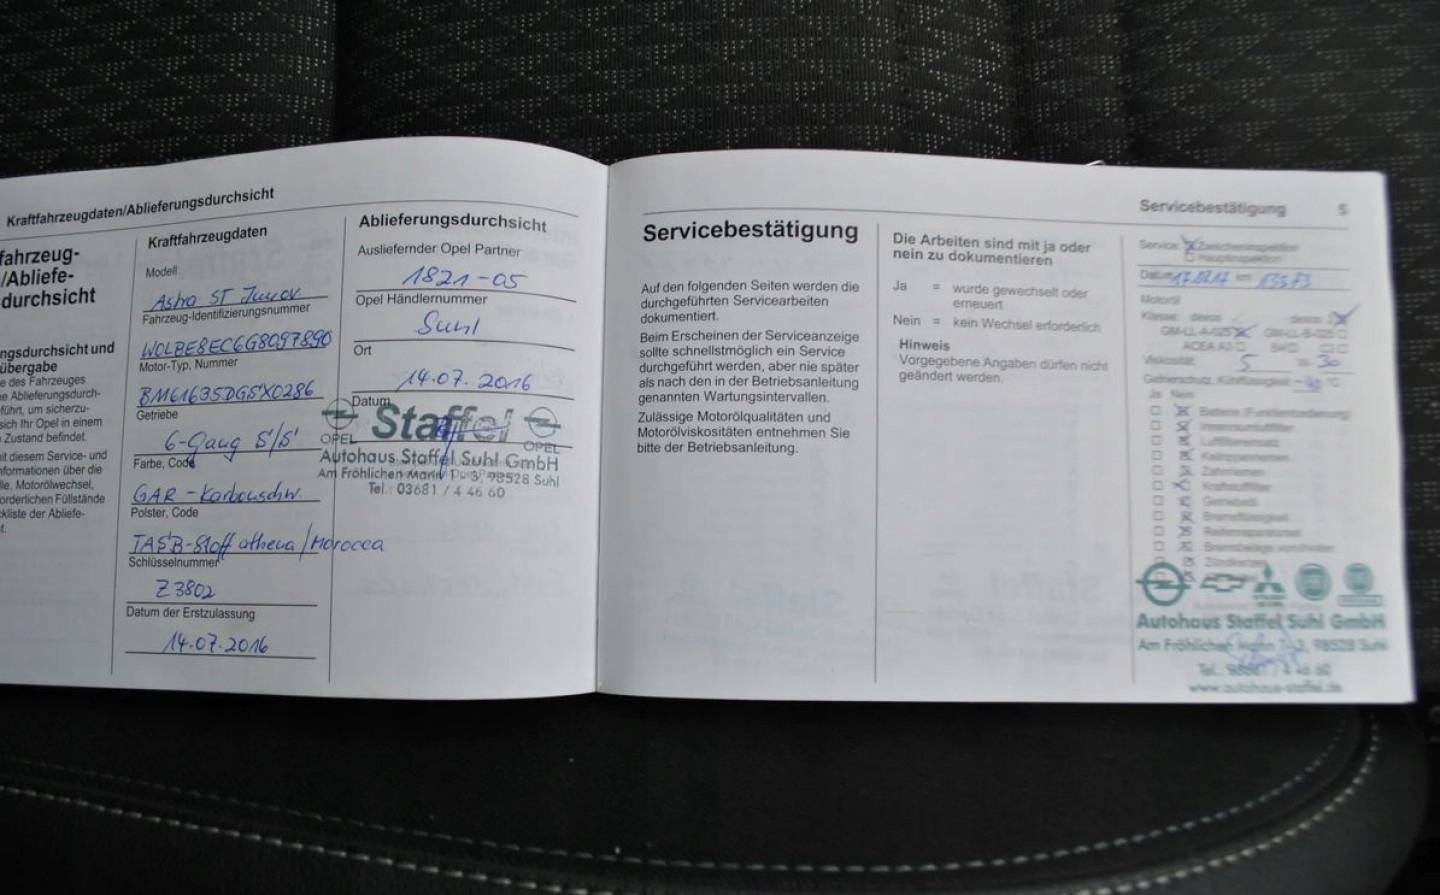 Kraftfahrzeugdaten/Ablieferungsdurchsicht
fahrzeug-
/Abliefe-
durchsicht
ngsdurchsicht und
übergabe
e des Fahrzeuges
ne Ablieferungsdurch-
führt, um sicherzu-
sich Ihr Opel in einem
Zustand befindet.
mit diesem Service- und
nformationen über die
lle, Motorölwechsel,
orderlichen Füllstände
ckliste der Abliefe-
t.
Kraftfahrzeugdaten
Modell
Astra ST
Fahrzeug-Identifizierungsnummer
W0LBE8EC6G8097890
Motor-Typ, Nummer
Getriebe
6-Gang S/S
Farbe, Code
GAR - Karbonschw.
Polster, Code
TASB-Stoff athena/Morocca
Schlüsselnummer
Z3802
Datum der Erstzulassung
14.07.2016
Ablieferungsdurchsicht
Ausliefernder Opel Partner
1821-05
Opel Händlernummer
Suhl
Ort
14.07.2016
Datum
Staffel
OPEL OPEL
Autohaus Staffel Suhl GmbH
Am Fröhlichen Mann 1 - 3, 98528 Suhl
Tel.: 03681 / 4 46 60
Servicebestätigung 5
Servicebestätigung
Auf den folgenden Seiten werden die
durchgeführten Servicearbeiten
dokumentiert.
Beim Erscheinen der Serviceanzeige
sollte schnellstmöglich ein Service
durchgeführt werden, aber nie später
als nach den in der Betriebsanleitung
genannten Wartungsintervallen.
Zulässige Motorölqualitäten und
Motorölviskositäten entnehmen Sie
bitte der Betriebsanleitung.
Die Arbeiten sind mit ja oder
nein zu dokumentieren
Ja = wurde gewechselt oder
erneuert
Nein = kein Wechsel erforderlich
Hinweis
Vorgegebene Angaben dürfen nicht
geändert werden.
Service: Zwischeninspektion
Hauptinspektion
Datum km
Motoröl
Klasse: dexos dexos
GM-LL-A-025 GM-LL-B-025
ACEA A3
Viskosität: 5 W- 30
Gefrierschutz, Kühlflüssigkeit °C
Ja Nein
Batterie (Funkfernbedienung)
Innenraumfilter
Luftfiltereinsatz
Keilrippenriemen
Zahnriemen
Kraftstofffilter
Getriebeöl
Bremsflüssigkeit
Reifenreparaturset
Bremsbeläge
Zündkerzen
Autohaus Staffel Suhl GmbH
Am Fröhlichen Mann 98528 Suhl
Tel.: 4 46 60
www.autohaus-staffel.de